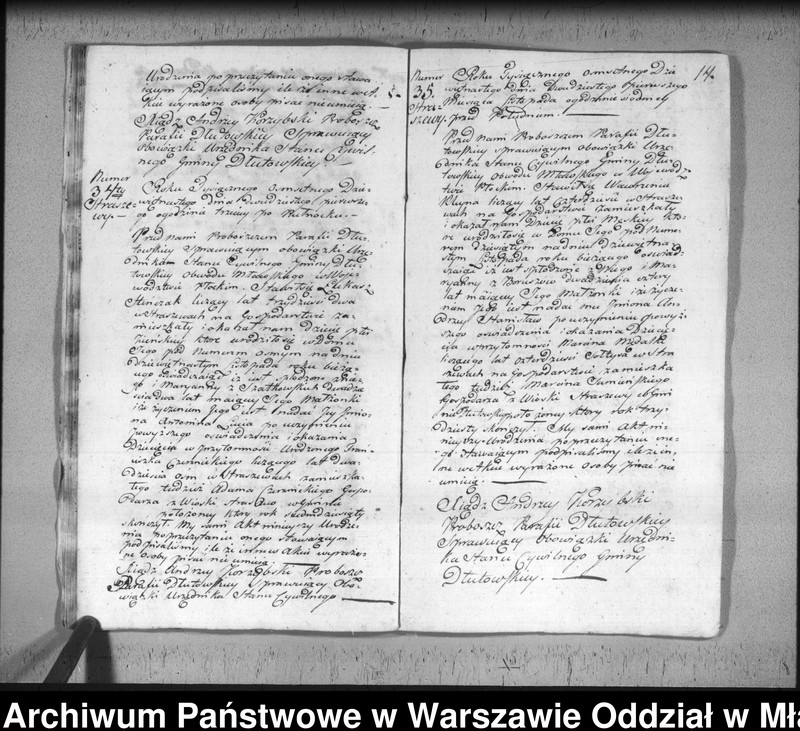 Urodzenia po przeczytaniu onego stawa
iącym podpisaliśmy ile iż inne w et
kie wyrażone osoby pisać nieumieią.
Xiądz Andrzy Korzybski Proboszcz
Parafii Dłutowskiy Sprawuiący
Obowiązki Urzędnika Stanu Cywil
nego Gminy Dłutowskiy
Numer
34ty
Strasze
wy
Roku Tysiącznego Osmsetnego Dzie
więtnastego dnia Dwudziestego pierwsze
go o godzinie trzeciy po Południu.
Przed nami Proboszczem Parafii Dłu
towskiy sprawuiącym obowiązki Urzę
dnika Stanu Cywilnego Gminy Dłu
towskiy Obwodu Mławskiego w Woje
wództwie Płockim. Stawił się Łukasz
liczący lat trzydzieści dwa
w Straszewach na Gospodarstwie za
mieszkały i okazał nam Dziecię płci
żeńskiey które urodziło się w Domu
Jego pod Numerem osmym na dniu
dziewiętnastym Listopada roku bieżą
cego oświadczaiąc iż iest spłodzone z Nie
go i Maryanny z Szatkowskich dwadzie
ścia dwa lat maiącey Jego Małżonki
i iż życzeniem Jego iest nadać Jey Imio
na Antonina Łucja po uczynieniu
powyższego oświadczenia i okazania
Dziecięcia w przytomności Urodzonego Fran
ciszka Czernickiego liczącego lat dwa
dzieścia osm w Straszewach zamieszka
łego tudzież Adama Czernickiego Gospo
darza z Wioski Straszewo w Gminie
położoney który rok siedmdziesiąty
skończył. My sami Akt niniejszy Urodze
nia po przeczytaniu onego Stawaiącym
podpisaliśmy ile iż inne w Akcie wyrażo
ne Osoby pisać nie umieią
Xiądz Andrzy Korzybski Proboszcz
Parafii Dłutowskiy Sprawuiący Obo
wiązki Urzędnika Stanu Cywilnego
14.
Numer
35.
Stra
szewy.
Roku Tysiącznego Osmsetnego Dzie
więtnastego dnia Dwudziestego pierwszego
Miesiąca Listopada o godzinie siodmey
przed Południem.
Przed nami Proboszczem Parafii Dłu
towskiy sprawuiącym obowiązki Urzę
dnika Stanu Cywilnego Gminy Dłu
towskiy Obwodu Mławskiego w Wojewódz
twie Płockim. Stawił się Wawrzeniec
liczący lat Czterdzieści w Strasze
wach na Gospodarstwie zamieszkały
i okazał nam Dziecię płci Męskiey któ
re urodziło się w Domu Jego pod Nume
rem dziewiątym na dniu Dziewiętna
stym Listopada roku bieżącego oświad
czaiąc iż iest spłodzone z Niego i Ma
ryanny z dwadzieścia cztery
lat maiącey Jego Małżonki i iż życze
niem Jego iest nadać mu Imiona An
drzey Stanisław po uczynieniu powyż
szego oświadczenia i okazania Dziecię
cia w przytomności Marcina
liczącego lat czterdzieści Sołtysa w Stra
szewach na Gospodarstwie zamieszka
łego tudzież Marcina
Gospodarza z Wioski Straszewy w Gmi
nie Dłutowskiey położoney który rok trzy
dziesty skończył. My sami Akt ni
niejszy Urodzenia po przeczytaniu one
go Stawaiącym podpisaliśmy ile iż in
ne w etkie wyrażone osoby pisać nie
umieią.
Xiądz Andrzy Korzybski
Proboszcz Parafii Dłutowskiy
Sprawuiący Obowiązki Urzędni
ka Stanu Cywilnego Gminy
Dłutowskiy.
Archiwum Państwowe w Warszawie Oddział w Mła